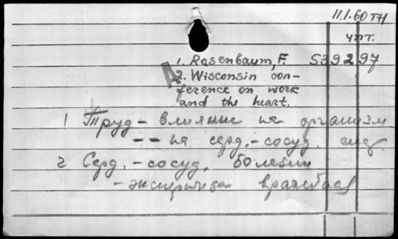 11.1.60 тн
чит.
1. Rosenbaum, F. 539297
2. Wisconsin con-
ference on work
and the heart.
1 Труд - влияние на организм
-- на серд.-сосуд.
2 Серд.-сосуд. болезни
- экспертиза врачебная